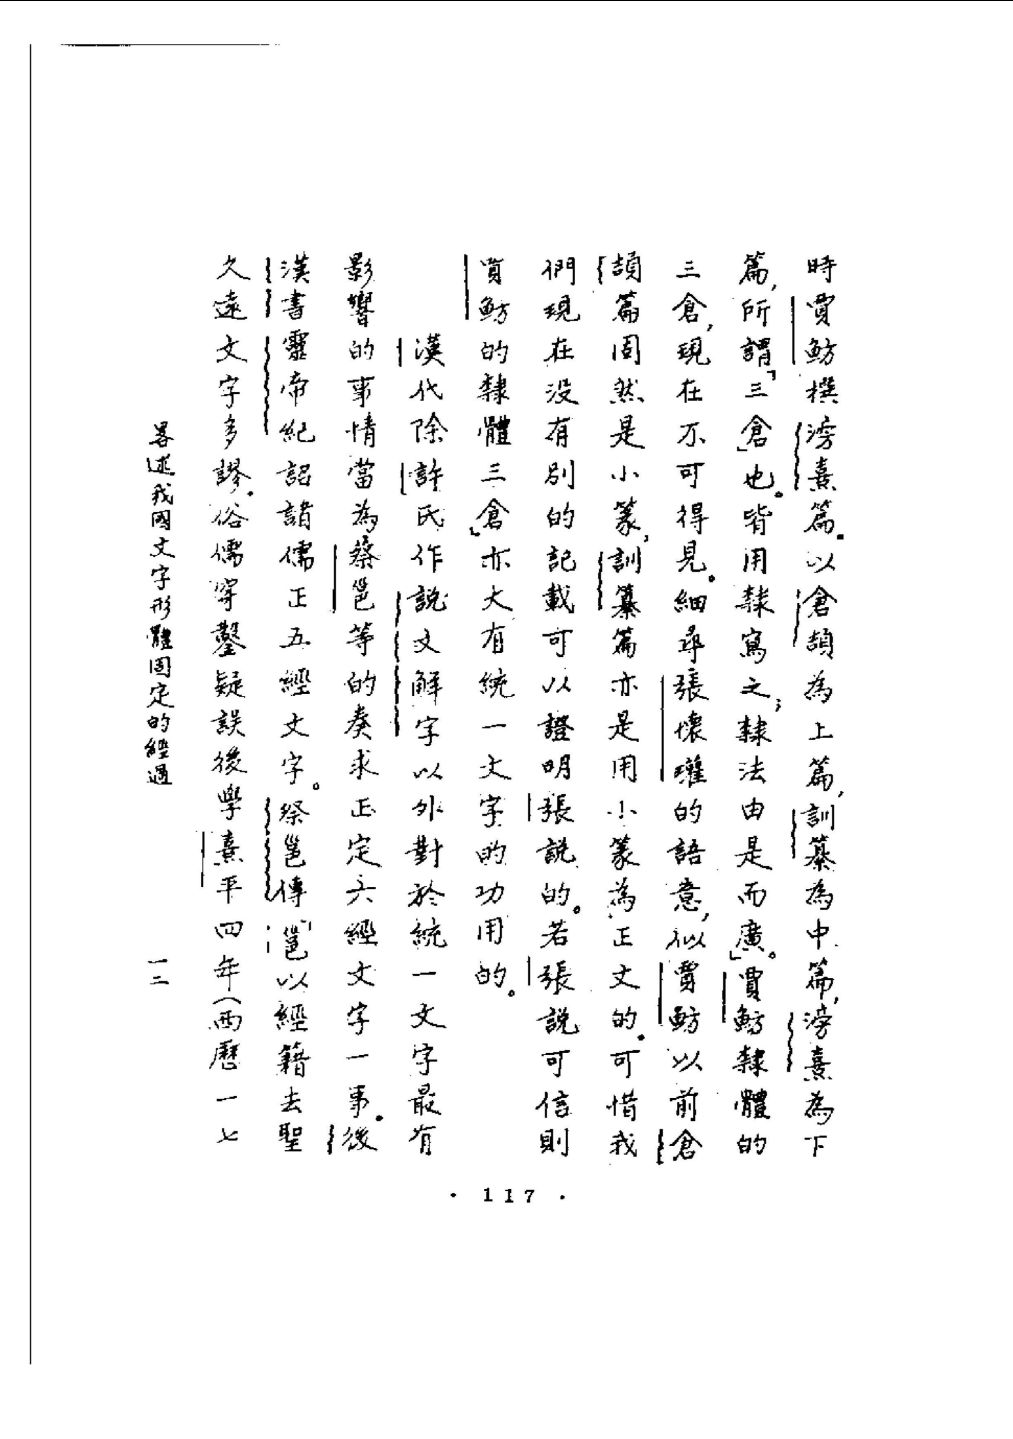 時賈魴撰滂熹篇。以倉頡為上篇，訓纂為中篇，滂熹為下
篇，所謂「三倉」也。皆用隸寫之；隸法由是而廣。」賈魴隸體的
三倉，現在不可得見。細尋張懷瓘的語意，似賈魴以前倉
頡篇固然是小篆，訓纂篇亦是用小篆為正文的。可惜我
們現在没有別的記載可以證明張說的。若張說可信則
賈魴的隸體三倉」亦大有統一文字的功用的。
漢代除許氏作説文解字以外對於統一文字最有
影響的事情當為蔡邕等的奏求正定六經文字一事。後
漢書靈帝紀詔諸儒正五經文字。蔡邕傳：「邕以經籍去聖
久遠文字多謬。俗儒穿鑿疑誤後學熹平四年（西曆一七
畧述我國文字形體固定的經過
一二
· 117 ·